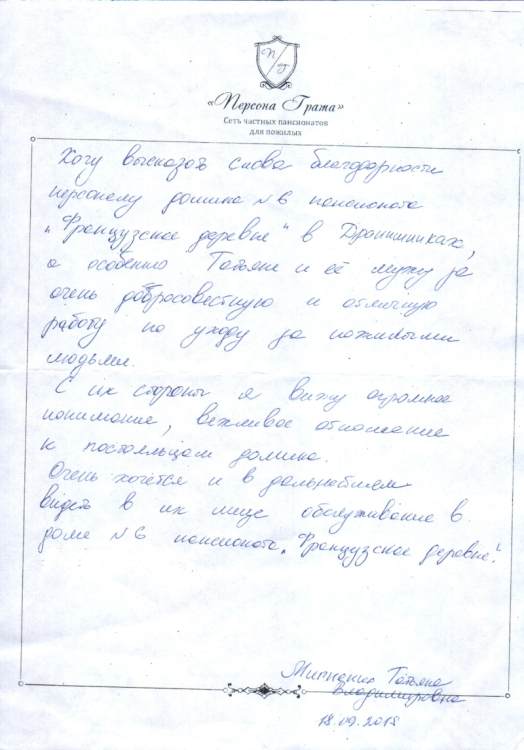 П Г
«Персона Грата»
Сеть частных пансионатов
для пожилых
Хочу высказать слова благодарности
персоналу домика №6 пансионата
„Французская деревня" в Дранишниках,
а особенно Татьяне и её мужу за
очень добросовестную и отличную
работу по уходу за пожилыми
людьми.
С их стороны я вижу огромное
понимание, вежливое отношение
к постояльцам домика.
Очень хочется и в дальнейшем
видеть в их лице обслуживание в
доме №6 пансионата „Французская деревня".
Татьяна
Владимировна